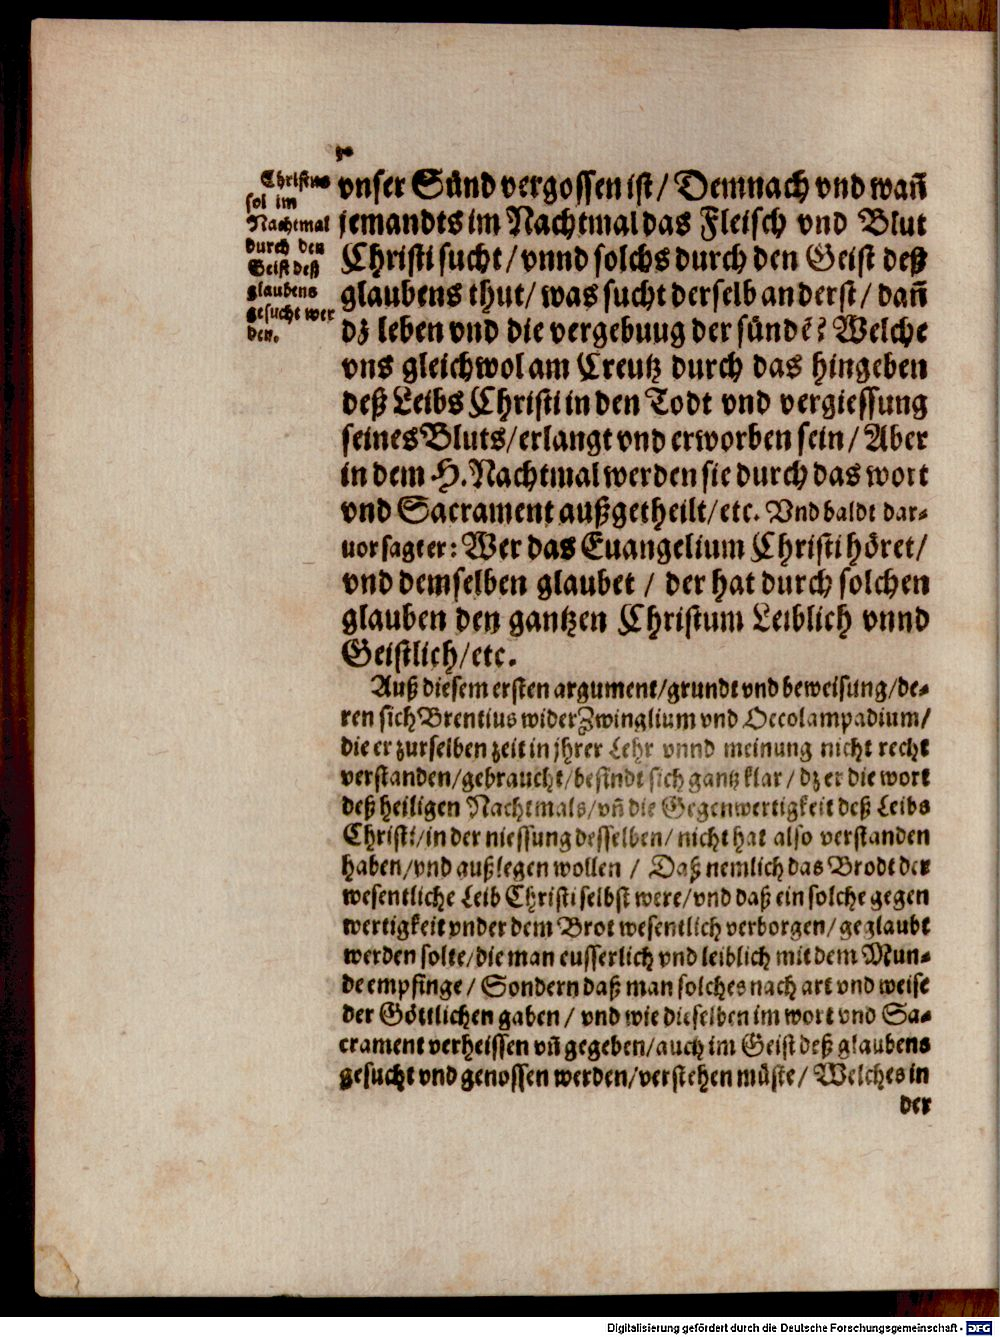 Christus
sol im
Nachtmal
durch den
Geist deß
glaubens
gesucht wer
den.
vnser Sünd vergossen ist/ Demnach vnd wañ
jemandts im Nachtmal das Fleisch vnd Blut
Christi sucht/ vnnd solchs durch den Geist deß
glaubens thut/ was sucht derselb anderst/ dañ
dz leben vnd die vergebuug der sündē? Welche
vns gleichwol am Creutz durch das hingeben
deß Leibs Christi in den Todt vnd vergiessung
seines Bluts/ erlangt vnd erworben sein/ Aber
in dem H. Nachtmal werden sie durch das wort
vnd Sacrament außgetheilt/ etc. Vnd baldt dar-
uor sagt er: Wer das Euangelium Christi höret/
vnd demselben glaubet / der hat durch solchen
glauben den gantzen Christum Leiblich vnnd
Geistlich/ etc.
Auß diesem ersten argument/ grundt vnd beweisung/ de-
ren sich Brentius wider Zwinglium vnd Oecolampadium/
die er zur selben zeit in jhrer Lehr vnnd meinung nicht recht
verstanden/ gebraucht/ befindt sich gantz klar / dz er die wort
deß heiligen Nachtmals/ vñ die Gegenwertigkeit deß Leibs
Christi/ in der niessung desselben/ nicht hat also verstanden
haben/ vnd außlegen wollen / Daß nemlich das Brodt der
wesentliche Leib Christi selbst were/ vnd daß ein solche gegen
wertigkeit vnder dem Brot wesentlich verborgen/ geglaubt
werden solte/ die man eusserlich vnd leiblich mit dem Mun-
de empfinge/ Sondern daß man solches nach art vnd weise
der Göttlichen gaben / vnd wie dieselben im wort vnd Sa-
crament verheissen vñ gegeben/ auch im Geist deß glaubens
gesucht vnd genossen werden/ verstehen müste/ Welches in
der
Digitalisierung gefördert durch die Deutsche Forschungsgemeinschaft - DFG